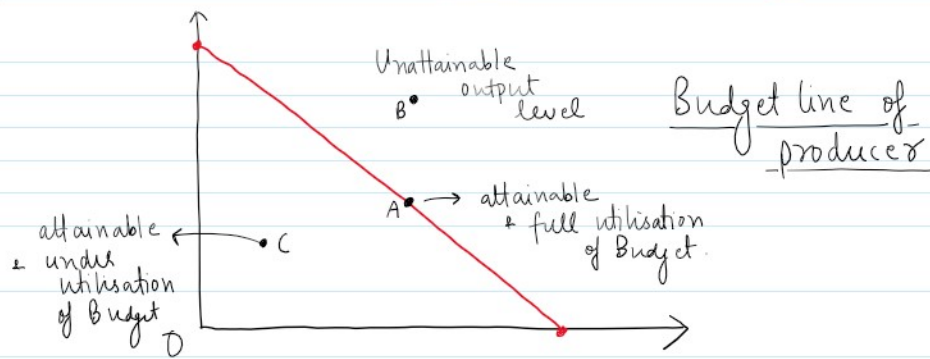 Unattainable
output
level
B
Budget line of
producer
A → attainable
& full utilisation
of Budget.
attainable
& under
utilisation
of Budget
C
O